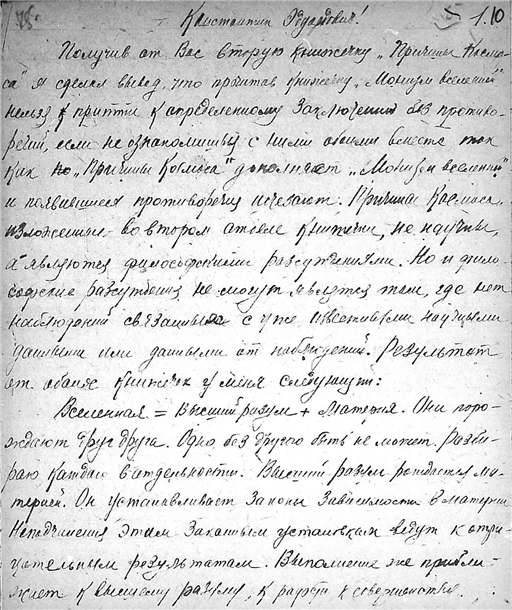 Константин Эдуардович!
5 1.10
Получив от Вас вторую книжечку "Причины Космо-
са" я сделал вывод, что прочитав книжечку "Монизм вселенной"
нельзя притти к определенному заключению без противо-
речий, если не ознакомишься с ними обоими вместе так
как "Причины Космоса" дополняет "Монизм вселенной"
и появившиеся противоречия исчезают. Причины Космоса,
изложенные во втором отделе книжечки, не научны,
а являются философскими рассуждениями. Но и фило-
софские рассуждения не могут явится там, где нет
наблюдений связанных с уже известными научными
данными или данными от наблюдений. Результат
от обоих книжечек у меня следующий:
Вселенная = Высший разум + Материя. Они поро-
ждают друг друга. Одно без другого быть не может. Разби-
раю каждого в отдельности. Высший разум рождается ма-
терией. Он устанавливает Законы Зависимости в материи
Неподчинения этим Законным установкам ведут к отри-
цательным результатам. Выполнение же прибли-
жает к высшему разуму, к радости к совершенству.